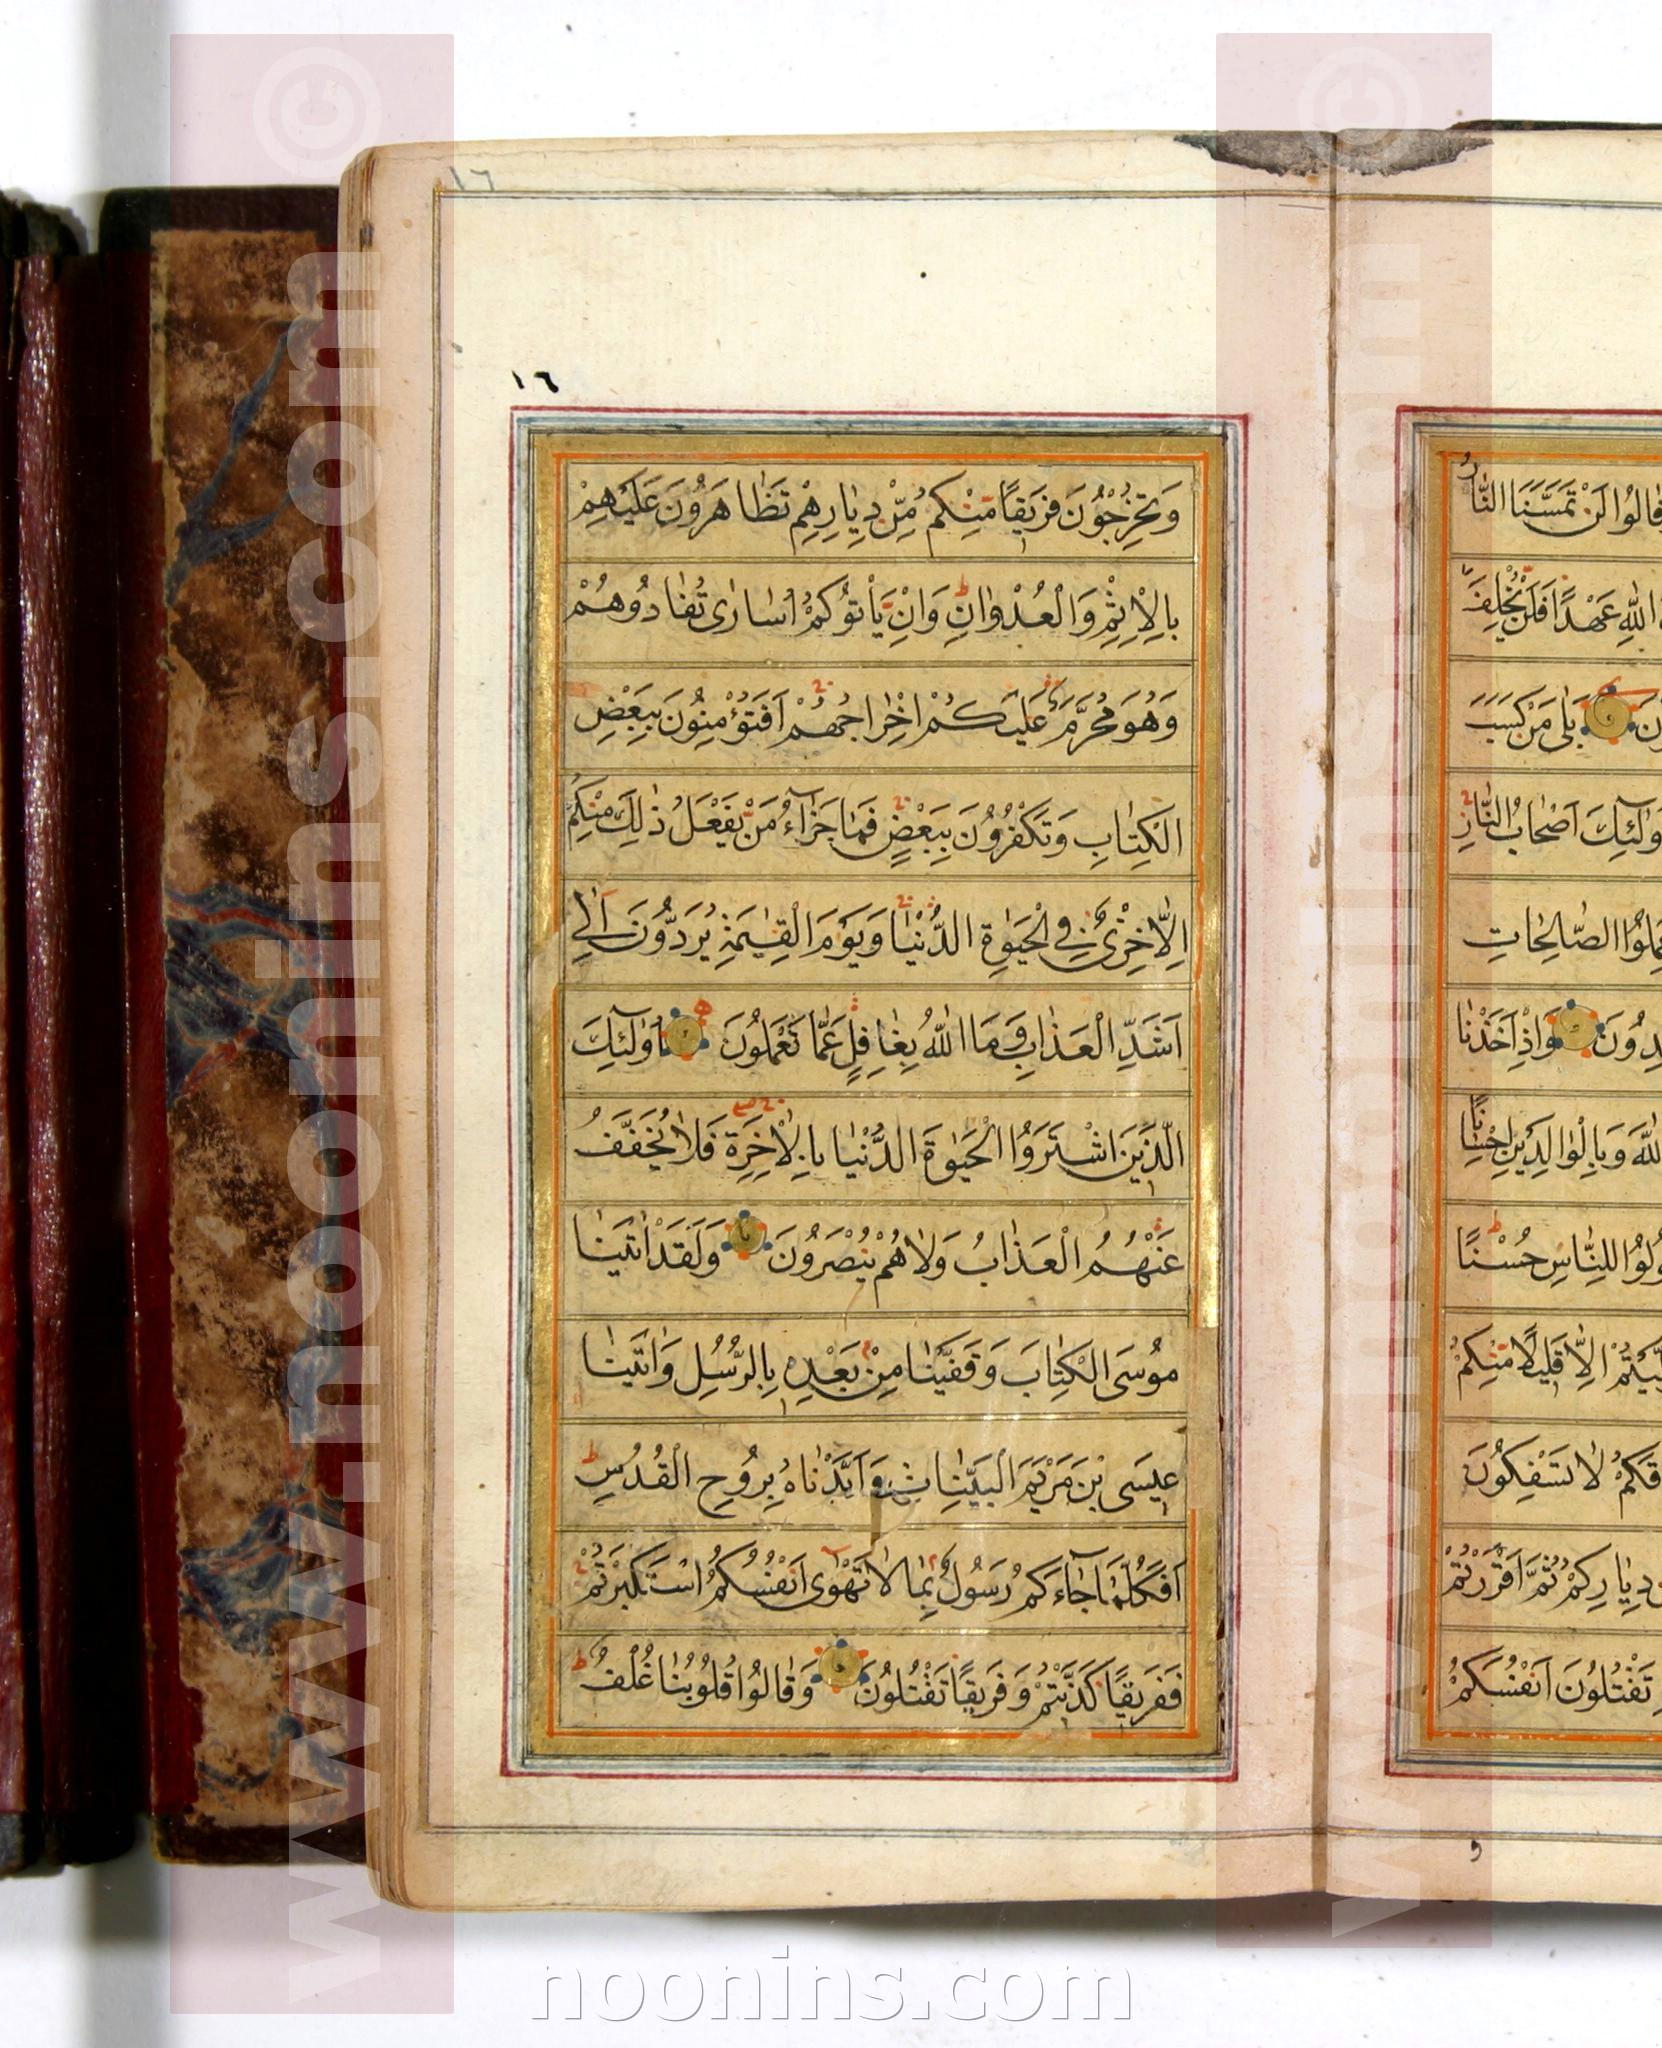 ١٦
١٦
وَتُخْرِجُونَ فَرِيقًا مِنْكُمْ مِنْ دِيَارِهِمْ تَظَاهَرُونَ عَلَيْهِمْ
بِالْاِثْمِ وَالْعُدْوَانِ وَاِنْ يَأْتُوكُمْ اُسَارٰى تُفَادُوهُمْ
وَهُوَ مُحَرَّمٌ عَلَيْكُمْ اِخْرَاجُهُمْ اَفَتُؤْمِنُونَ بِبَعْضِ
الْكِتَابِ وَتَكْفُرُونَ بِبَعْضٍ فَمَا جَزَآءُ مَنْ يَفْعَلُ ذٰلِكَ مِنْكُمْ
اِلَّا خِزْىٌ فِى الْحَيٰوةِ الدُّنْيَا وَيَوْمَ الْقِيٰمَةِ يُرَدُّونَ اِلٰى
اَشَدِّ الْعَذَابِ وَمَا اللّٰهُ بِغَافِلٍ عَمَّا تَعْمَلُونَ اُولٰٓئِكَ
الَّذِينَ اشْتَرَوُا الْحَيٰوةَ الدُّنْيَا بِالْاٰخِرَةِ فَلَا يُخَفَّفُ
عَنْهُمُ الْعَذَابُ وَلَا هُمْ يُنْصَرُونَ وَلَقَدْ اٰتَيْنَا
مُوسَى الْكِتَابَ وَقَفَّيْنَا مِنْ بَعْدِهِ بِالرُّسُلِ وَاٰتَيْنَا
عِيسَى بْنَ مَرْيَمَ الْبَيِّنَاتِ وَاَيَّدْنَاهُ بِرُوحِ الْقُدُسِ
اَفَكُلَّمَا جَآءَكُمْ رَسُولٌ بِمَا لَا تَهْوٰى اَنْفُسُكُمُ اسْتَكْبَرْتُمْ
فَفَرِيقًا كَذَّبْتُمْ وَفَرِيقًا تَقْتُلُونَ وَقَالُوا قُلُوبُنَا غُلْفٌ
قَالُوا لَنْ تَمَسَّنَا النَّارُ
اللّٰهِ عَهْدًا فَلَنْ يُخْلِفَ
بَلٰى مَنْ كَسَبَ
اَصْحَابُ النَّارِ
الصَّالِحَاتِ
وَاِذْ اَخَذْنَا
وَبِالْوَالِدَيْنِ اِحْسَانًا
لِلنَّاسِ حُسْنًا
اِلَّا قَلِيلًا مِنْكُمْ
لَا تَسْفِكُونَ
دِيَارِكُمْ ثُمَّ اَقْرَرْتُمْ
تَقْتُلُونَ اَنْفُسَكُمْ
www.noonins.com ©
www.noonins.com ©
noonins.com